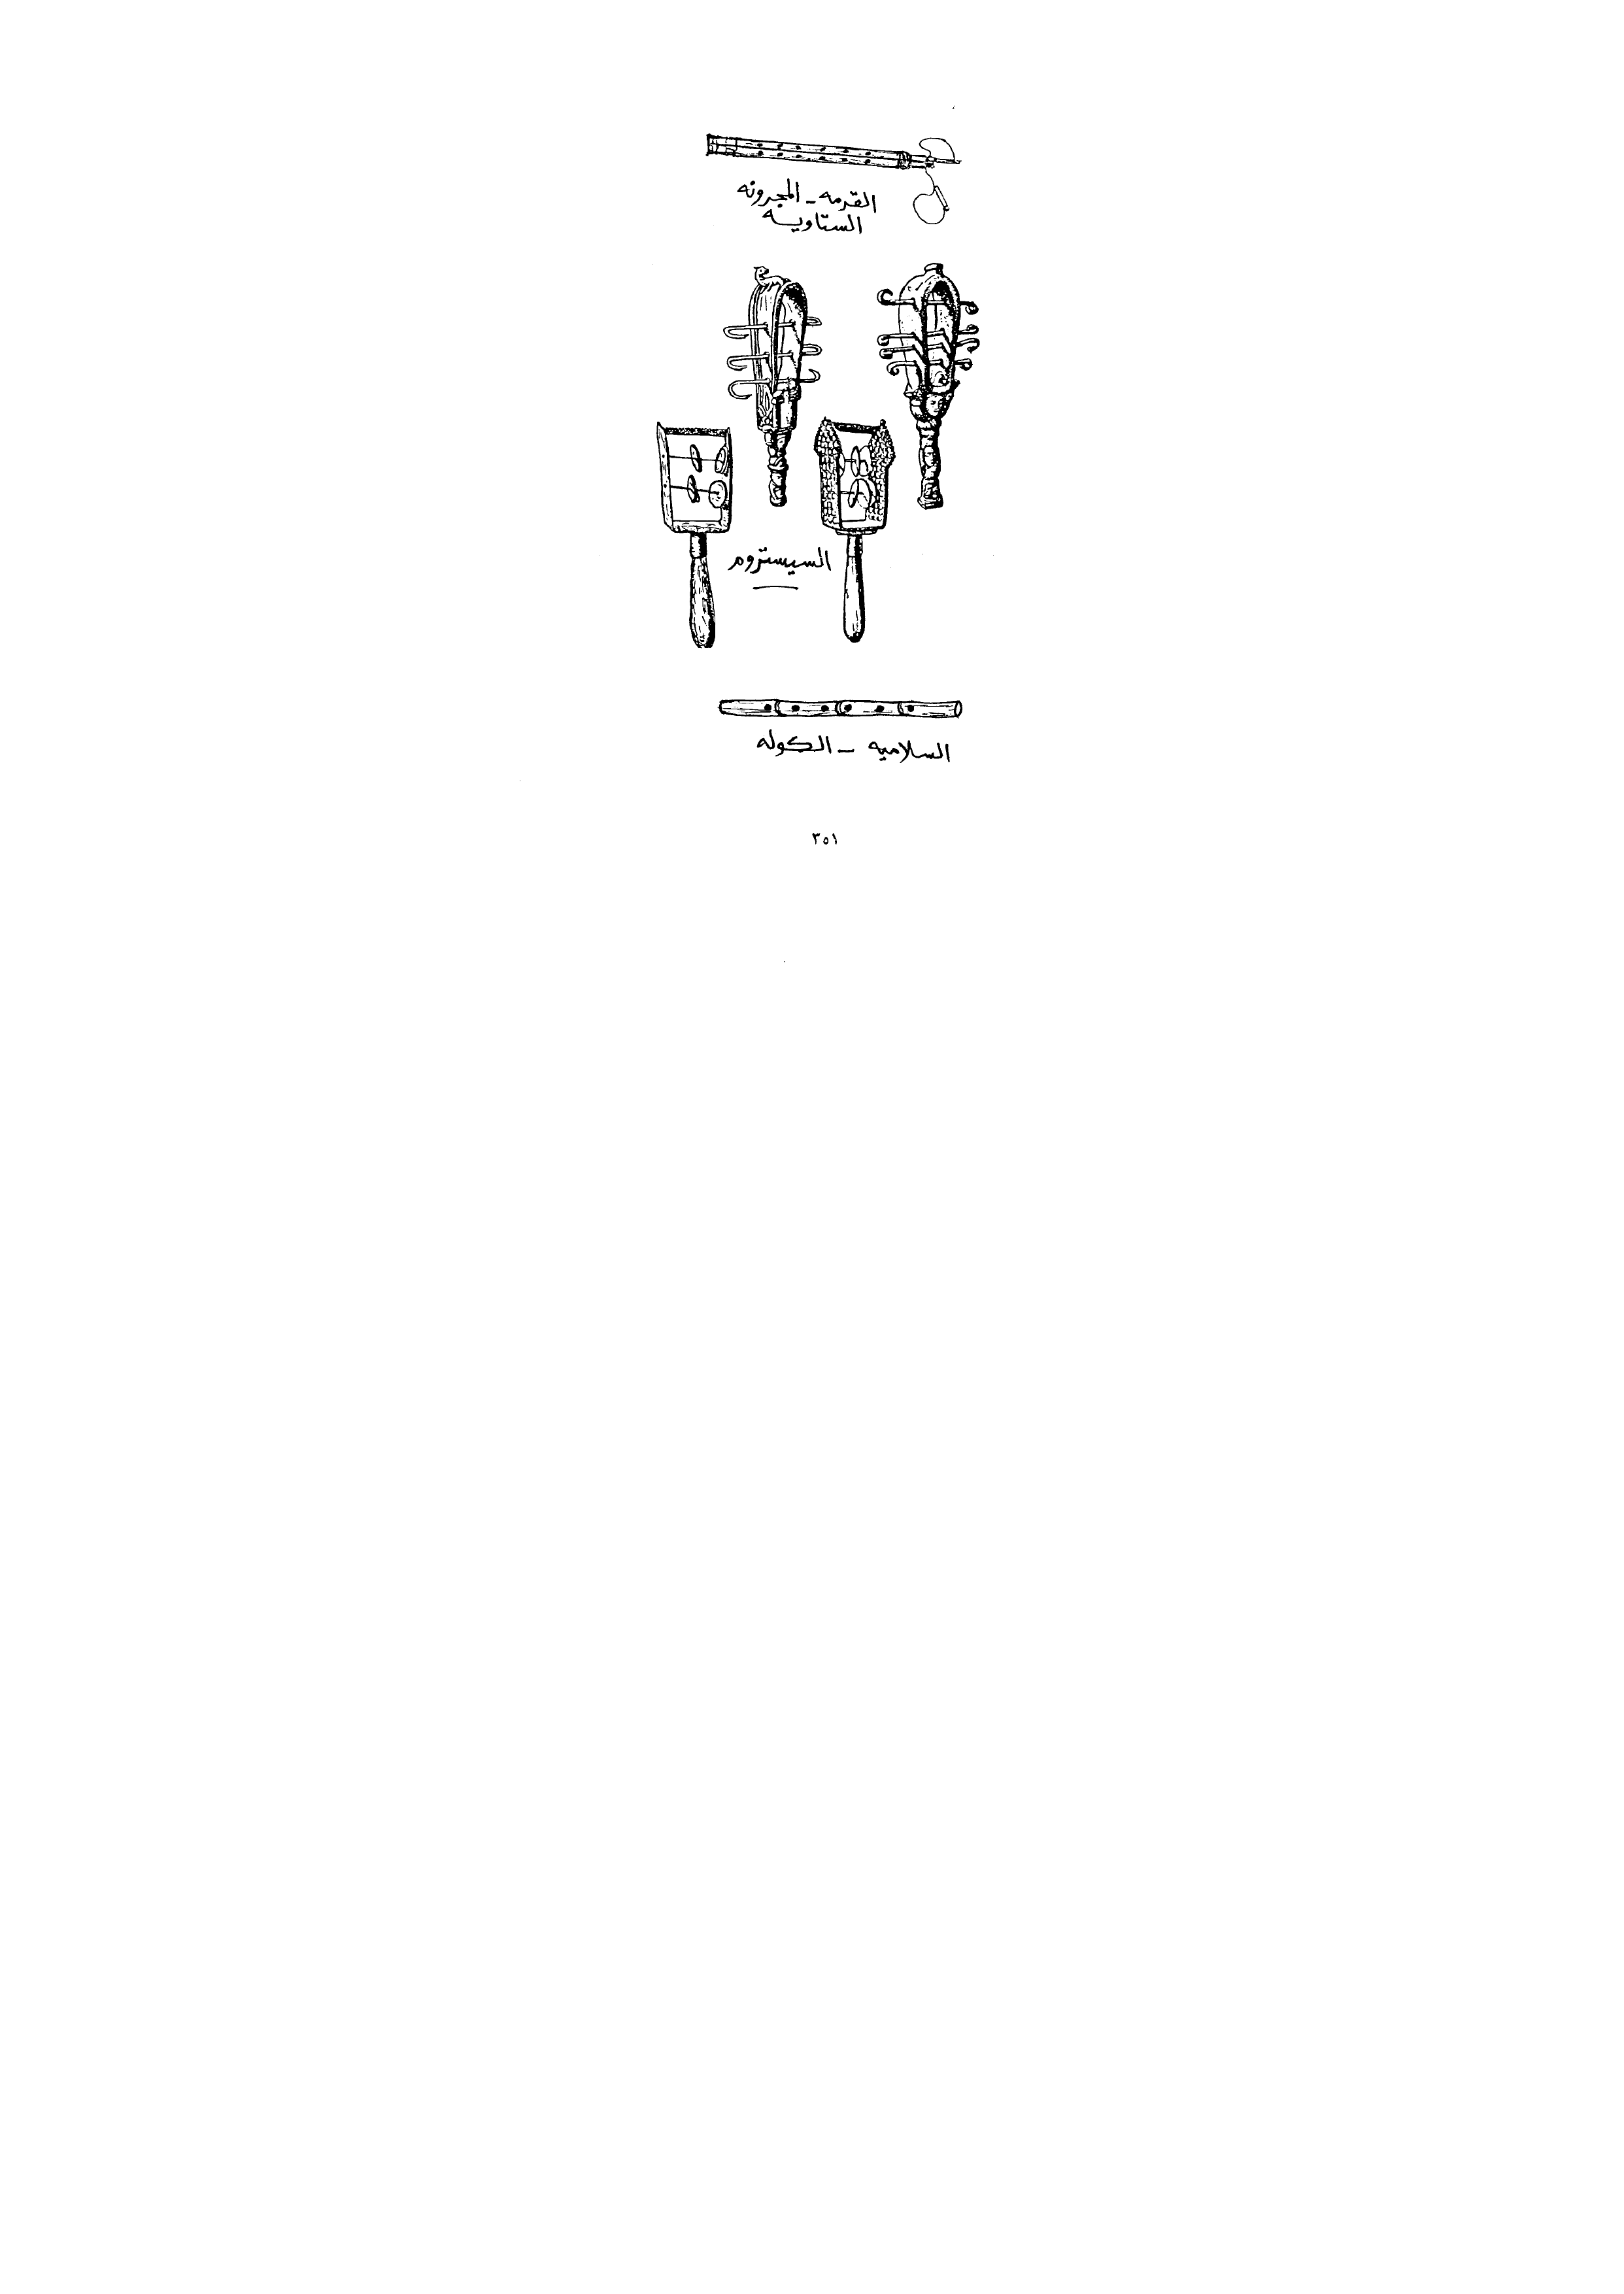 القرمه - المجرونه
الستاويه
السيستروم
السلاميه - الكوله
٣٥١